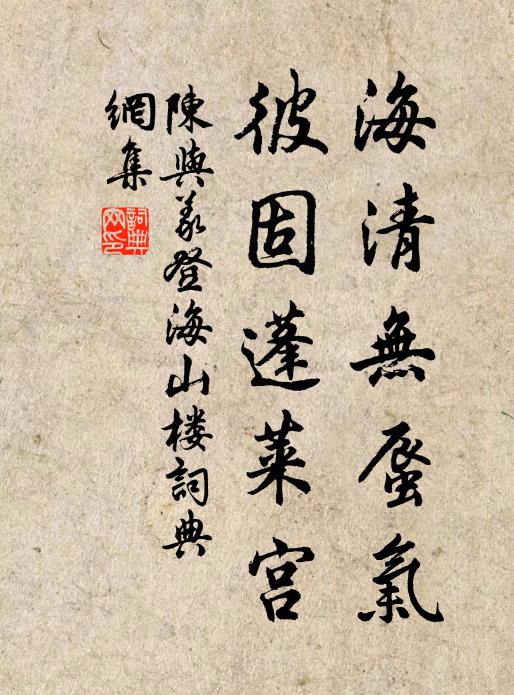 海清無蜃氣
彼固蓬萊宮
陳與義登海山樓詞典
網集
詞典網印